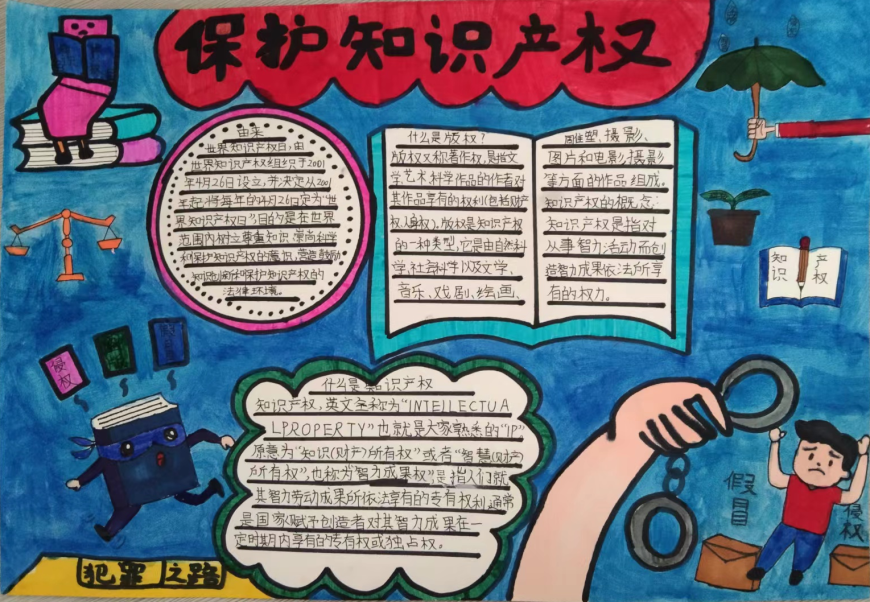 保护知识产权
由来
世界知识产权日,由
世界知识产权组织于2001
年4月26日设立,并决定从2001
年起将每年的4月26日定为"世
界知识产权日"目的是在世界
范围内树立尊重知识 崇尚科学
和保护知识产权的意识,营造鼓励
知识创新和保护知识产权的
法律环境。
什么是版权?
版权又称著作权,是指文
学艺术,科学作品的作者对
其作品享有的权利(包括财产
权,人身权),版权是知识产权
的一种类型,它是由自然科
学,社会科学以及文学、
音乐、戏剧、绘画、
雕塑、摄影、
图片和电影摄影
等方面的作品组成。
知识产权的概念:
知识产权是指对
从事智力活动而创
造智力成果依法所享
有的权力。
知识
产权
侵权
什么是知识产权
知识产权,英文名称为"INTELLECTUA
LPROPERTY"也就是大家熟悉的"IP"
原意为"知识(财产)所有权"或者"智慧(财产)
所有权",也称为智力成果权"是指人们就
其智力劳动成果所依法享有的专有权利,通常
是国家赋予创造者对其智力成果在一
定时期内享有的专有权或独占权。
假冒
侵权
犯罪之路